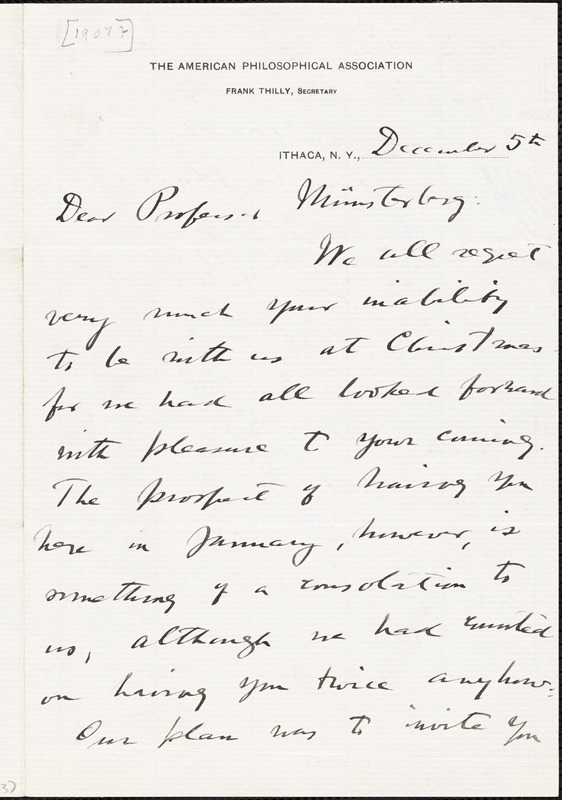 [1907?]
THE AMERICAN PHILOSOPHICAL ASSOCIATION
FRANK THILLY, SECRETARY
ITHACA, N. Y., December 5th
Dear Professor Münsterberg:
We all regret
very much your inability
to be with us at Christmas
for we had all looked forward
with pleasure to your coming.
The prospect of having you
here in January, however, is
something of a consolation to
us, although we had counted
on having you twice anyhow.
Our plan was to invite you
3)